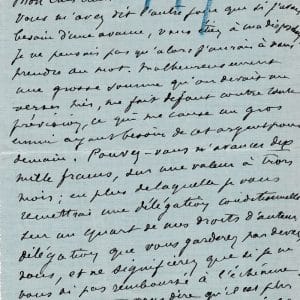 vous m'avez dit d'autre fois que si j'avais
besoin d'une avance, vous étiez à ma dispo
Je ne pensais pas qu'alors j'aurais à vous
prendre au mot. Malheureusement
une grosse somme qu'on devait me
verser hier, me fait défaut contre toute
prévision, ce qui me cause un gros
ennui ayant besoin de cet argent pour
demain. Pouvez-vous m'avancer dix
mille francs, sur une valeur à trois
mois; en plus de laquelle je vous
remettrais une délégation conditionnelle
sur un quart de nos droits d'auteur
délégation que vous garderez par devers
vous, et ne signifierez que si je ne
vous ai pas remboursé à l'échéance
dire qu'il est plus